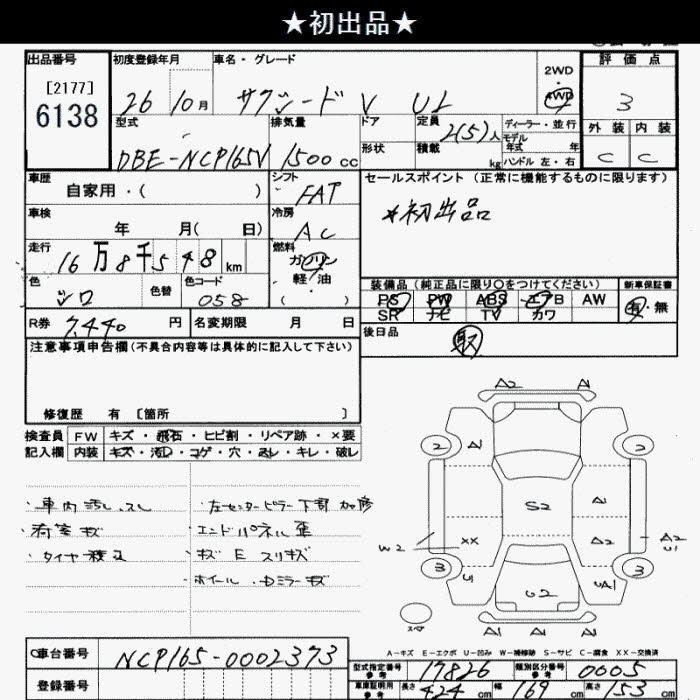 ★初出品★
出品番号
[2177]
6138
初度登録年月
26 10月
車名・グレード
サクシード V UL
2WD
・
4WD
評価点
3
外装 内装
C C
型式
DBE-NCP165V
排気量
1500 cc
ドア
形状
定員
2(5)人
積載
kg
ディーラー・並行
モデル
年式 年
ハンドル 左・右
車歴
自家用・( )
シフト
FAT
車検
年 月( 日)
冷房
AC
走行
16万8千548 km
燃料
ガソリン
軽・油
・
( )
色
シロ
色替
色コード
058
R券 7,440 円
名変期限 月 日
セールスポイント(正常に機能するものに限ります)
*初出品
装備品(純正品に限り○をつけてください)
新車保証書
PS PW ABS エアB AW
SR ナビ TV カワ
有・無
後日品
取
注意事項申告欄(不具合内容等は具体的に記入して下さい)
修復歴 有 〔箇所 〕
検査員
記入欄
FW キズ・飛石・ヒビ割・リペア跡・×要
内装 キズ・汚れ・コゲ・穴・スレ・キレ・破レ
・車内 汚し、スレ
・荷室キズ
・左センターピラー下部加修
・エンドパネル歪
・キズ E スリキズ
・ホイール・Dミラーキズ
A2 A1
2 A1 3
S2 A1
W2 XX A2 A2
U1
3 U1 UA1 3
U2
A1 A1 A1
スペア
A-キズ E-エクボ U-凹み W-補修跡 S-サビ C-腐食 XX-交換済
車台番号
NCP165-0002373
登録番号
型式指定番号
参考
17826
類別区分番号
参考
0005
車庫証明用
参考
長さ 424 cm
幅 169 cm
高さ 153 cm